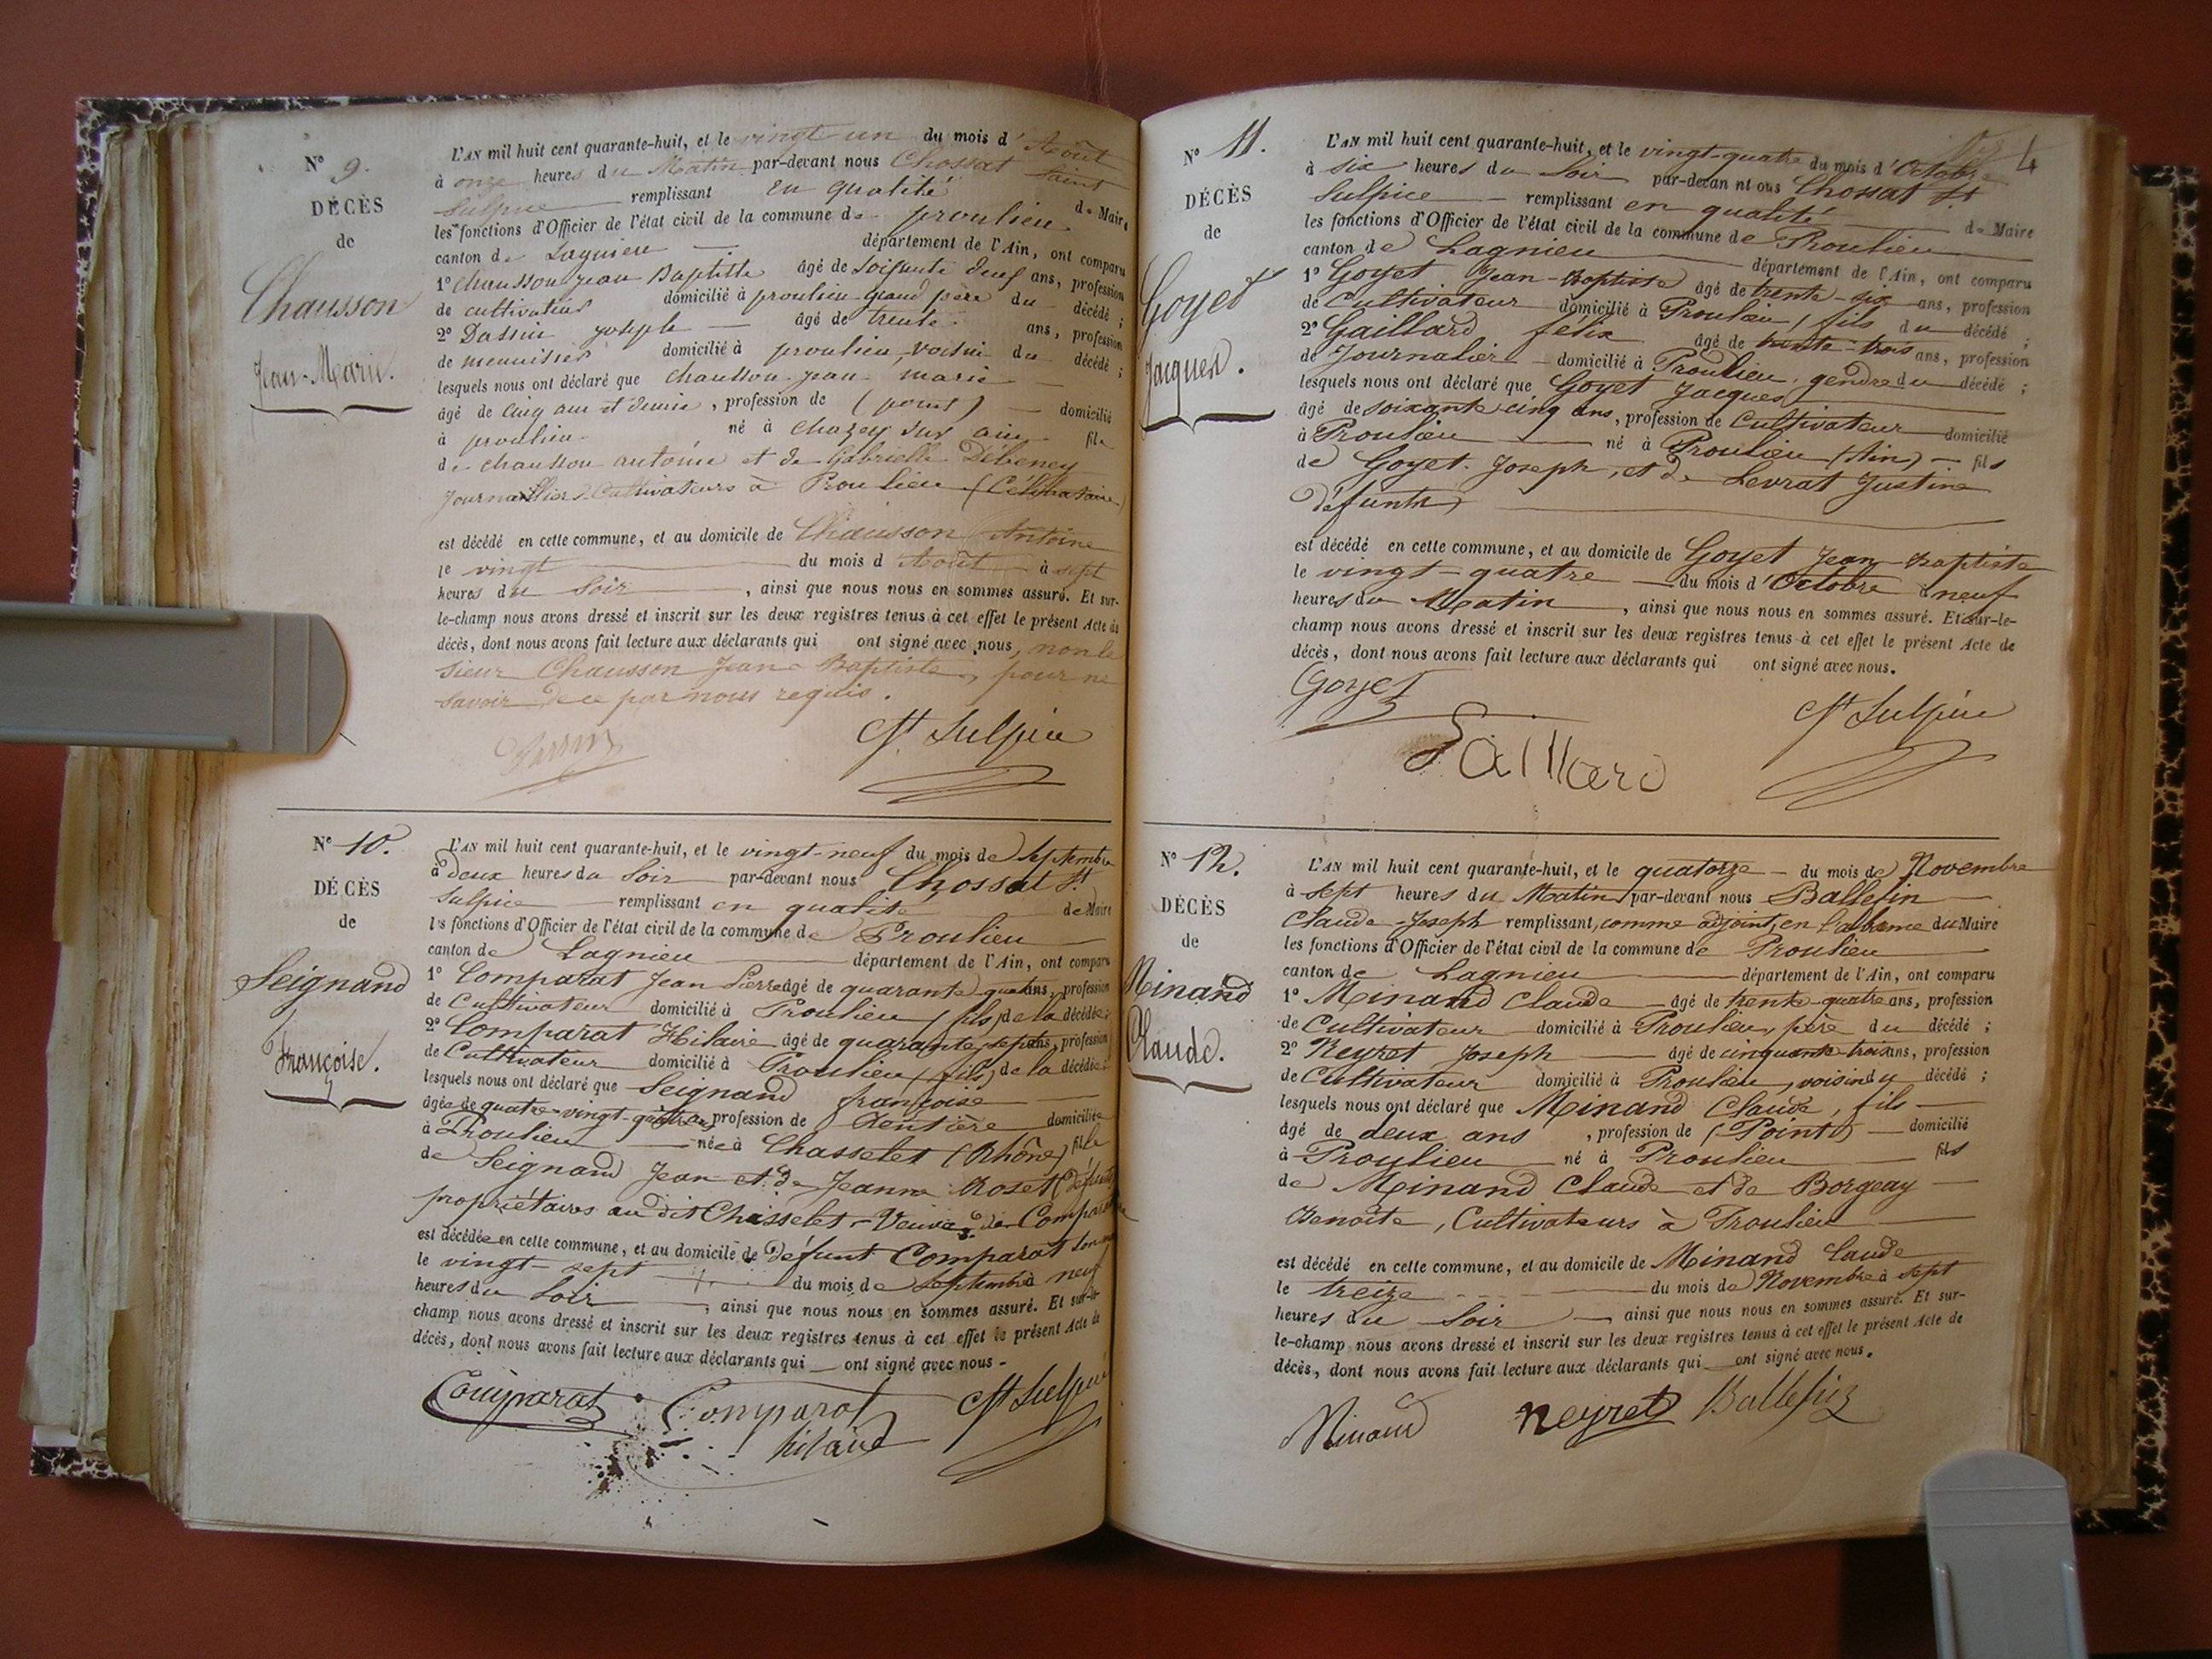 N° 9.
DÉCÈS
de
Chausson
Jean-Marie.
L'AN mil huit cent quarante-huit, et le vingt-un du mois d'Août
à onze heures du Matin par-devant nous Chossat Saint
Sulpice remplissant en qualité de Maire
les fonctions d'Officier de l'état civil de la commune de proulieu
canton de Lagnieu département de l'Ain, ont comparu
1° Chausson jean Baptiste âgé de soixante deux ans, profession
de cultivateur domicilié à proulieu grand père du décédé ;
2° Dassin joseph âgé de trente ans, profession
de menuisier domicilié à proulieu, voisin du décédé ;
lesquels nous ont déclaré que chausson jean marie
âgé de cinq ans et demie, profession de (point) domicilié
à proulieu né à chazey sur ain fils
de chausson antoine et de Gabrielle Débeney
Journallier & Cultivateurs à Proulieu (Célibataire)
est décédé en cette commune, et au domicile de Chausson Antoine
le vingt du mois d'Août à sept
heures du Soir, ainsi que nous nous en sommes assuré. Et sur-
le-champ nous avons dressé et inscrit sur les deux registres tenus à cet effet le présent Acte de
décès, dont nous avons fait lecture aux déclarants qui ont signé avec nous, non le
sieur Chausson Jean-Baptiste, pour ne
savoir de ce par nous requis.
Ct St Sulpice
N° 10.
DÉCÈS
de
Seignand
Françoise.
L'AN mil huit cent quarante-huit, et le vingt-neuf du mois de Septembre
à deux heures du Soir par-devant nous Chossat St
Sulpice remplissant en qualité de Maire
les fonctions d'Officier de l'état civil de la commune de Proulieu
canton de Lagnieu département de l'Ain, ont comparu
1° Comparat Jean Pierre âgé de quarante-quatre ans, profession
de Cultivateur domicilié à Proulieu (fils) de la décédée ;
2° Comparat Hilaire âgé de quarante-sept ans, profession
de Cultivateur domicilié à Proulieu (fils) de la décédée ;
lesquels nous ont déclaré que Seignand françoise
âgée de quatre-vingt-quatre ans, profession de Rentière domiciliée
à Proulieu née à Chasselet (Rhône) fille
de Seignand Jean et de Jeanne Roset (défunts)
propriétaires au dit Chasselet - Veuve de Comparat
est décédée en cette commune, et au domicile de Défunt Comparat son
le vingt-sept du mois de Septembre à neuf
heures du Soir, ainsi que nous nous en sommes assuré. Et sur-le-
champ nous avons dressé et inscrit sur les deux registres tenus à cet effet le présent Acte de
décès, dont nous avons fait lecture aux déclarants qui ont signé avec nous -
Comparat Comparat Ct St Sulpice
hilaire
4
N° 11.
DÉCÈS
de
Goyet
Jacques.
L'AN mil huit cent quarante-huit, et le vingt-quatre du mois d'Octobre
à six heures du Soir par-devan nt ous Chossat St
Sulpice remplissant en qualité de Maire
les fonctions d'Officier de l'état civil de la commune de Proulieu
canton de Lagnieu département de l'Ain, ont comparu
1° Goyet Jean-Baptiste âgé de trente-six ans, profession
de Cultivateur domicilié à Proulieu, fils du décédé ;
2° Gaillard felix âgé de trente-trois ans, profession
de Journalier domicilié à Proulieu, gendre du décédé ;
lesquels nous ont déclaré que Goyet Jacques
âgé de soixante cinq ans, profession de Cultivateur domicilié
à Proulieu né à Proulieu (Ain) fils
de Goyet Joseph, et de Levrat Justine
défunts
est décédé en cette commune, et au domicile de Goyet Jean-Baptiste
le vingt-quatre du mois d'Octobre à neuf
heures du Matin, ainsi que nous nous en sommes assuré. Et sur-le-
champ nous avons dressé et inscrit sur les deux registres tenus à cet effet le présent Acte de
décès, dont nous avons fait lecture aux déclarants qui ont signé avec nous.
Goyet Ct St Sulpice
Gaillard
N° 12.
DÉCÈS
de
Minand
Claude.
L'AN mil huit cent quarante-huit, et le quatorze du mois de Novembre
à sept heures du Matin par-devant nous Ballefin
Claude-Joseph remplissant, comme adjoint, en l'absence du Maire
les fonctions d'Officier de l'état civil de la commune de Proulieu
canton de Lagnieu département de l'Ain, ont comparu
1° Minand Claude âgé de trente-quatre ans, profession
de Cultivateur domicilié à Proulieu, père du décédé ;
2° Neyret Joseph âgé de cinquante-trois ans, profession
de Cultivateur domicilié à Proulieu, voisin du décédé ;
lesquels nous ont déclaré que Minand Claude, fils
âgé de deux ans, profession de (Point) domicilié
à Proulieu né à Proulieu fils
de Minand Claude et de Borgeay
Benoîte, Cultivateurs à Proulieu
est décédé en cette commune, et au domicile de Minand Claude
le treize du mois de Novembre à sept
heures du Soir ainsi que nous nous en sommes assuré. Et sur-
le-champ nous avons dressé et inscrit sur les deux registres tenus à cet effet le présent Acte de
décès, dont nous avons fait lecture aux déclarants qui ont signé avec nous.
Minand neyret Ballefin